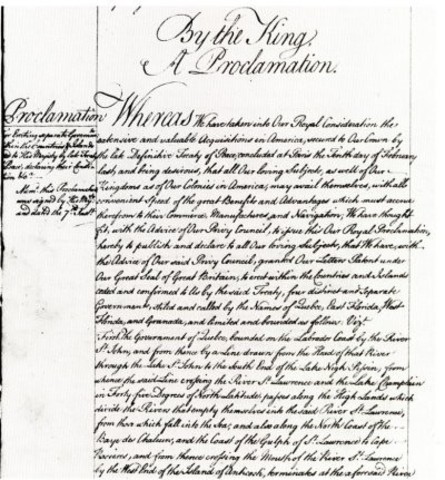 By the King.
A Proclamation.
Proclamation
for Erecting separate Governm
within the Countries & Islands
to His Majesty by late Treaty
Peace, declaring their Constitu
tion &c.
Mem. this Proclamation
was signed by His Maj
and dated the 7th Inst
Whereas We have taken into Our Royal Consideration the
extensive and valuable Acquisitions in America, secured to Our Crown by
the late Definitive Treaty of Peace, concluded at Paris the Tenth day of February
last; and being desirous, that all Our loving Subjects, as well of Our
Kingdoms as of Our Colonies in America, may avail themselves, with all
convenient Speed, of the great Benefits and Advantages which must accrue
therefrom to their Commerce, Manufactures, and Navigation; We have thought
fit, with the Advice of Our Privy Council, to issue this Our Royal Proclamation,
hereby to publish and declare to all Our loving Subjects, that We have, with
the Advice of Our said Privy Council, granted Our Letters Patent under
Our Great Seal of Great Britain, to erect within the Countries and Islands
ceded and confirmed to Us by the said Treaty, four distinct and separate
Governments, stiled and called by the Names of Quebec, East Florida, West
Florida, and Grenada, and limited and bounded as follows; Viz.
First, the Government of Quebec, bounded on the Labrador Coast by the River
St. John, and from thence by a Line drawn from the Head of that River
through the Lake St. John to the South End of the Lake Nigh Pissin, from
whence the said Line crossing the River St. Lawrence and the Lake Champlain
in Forty five Degrees of North Latitude, passes along the High Lands which
divide the Rivers that empty themselves into the said River St. Lawrence,
from those which fall into the Sea; and also along the North Coast of the
Baye des Chaleurs, and the Coast of the Gulph of St. Lawrence to Cape
Rosiers, and from thence crossing the Mouth of the River St. Lawrence
by the West End of the Island of Anticosti, terminates at the aforesaid River